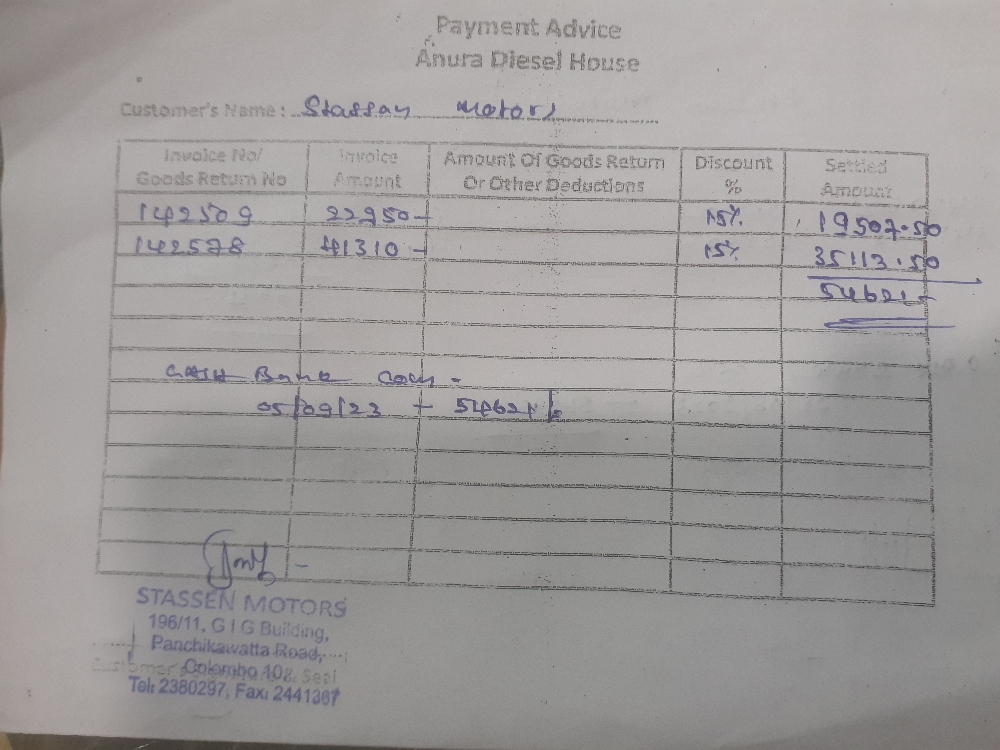 Payment Advice
Anura Diesel House
Customer's Name : Stassan Motors
Invoice No/ Goods Return No Invoice Amount Amount Of Goods Return Or Other Deductions Discount % Settled Amount
142509 22950 - 15% 19507.50
142578 41310 - 15% 35113.50
54621 -
CASH Bank
05/09/23 - 54621/-
STASSEN MOTORS
196/11, G I G Building,
Panchikawatta Road,
Colombo 10.
Customer Seal
Tel: 2380297, Fax: 2441367